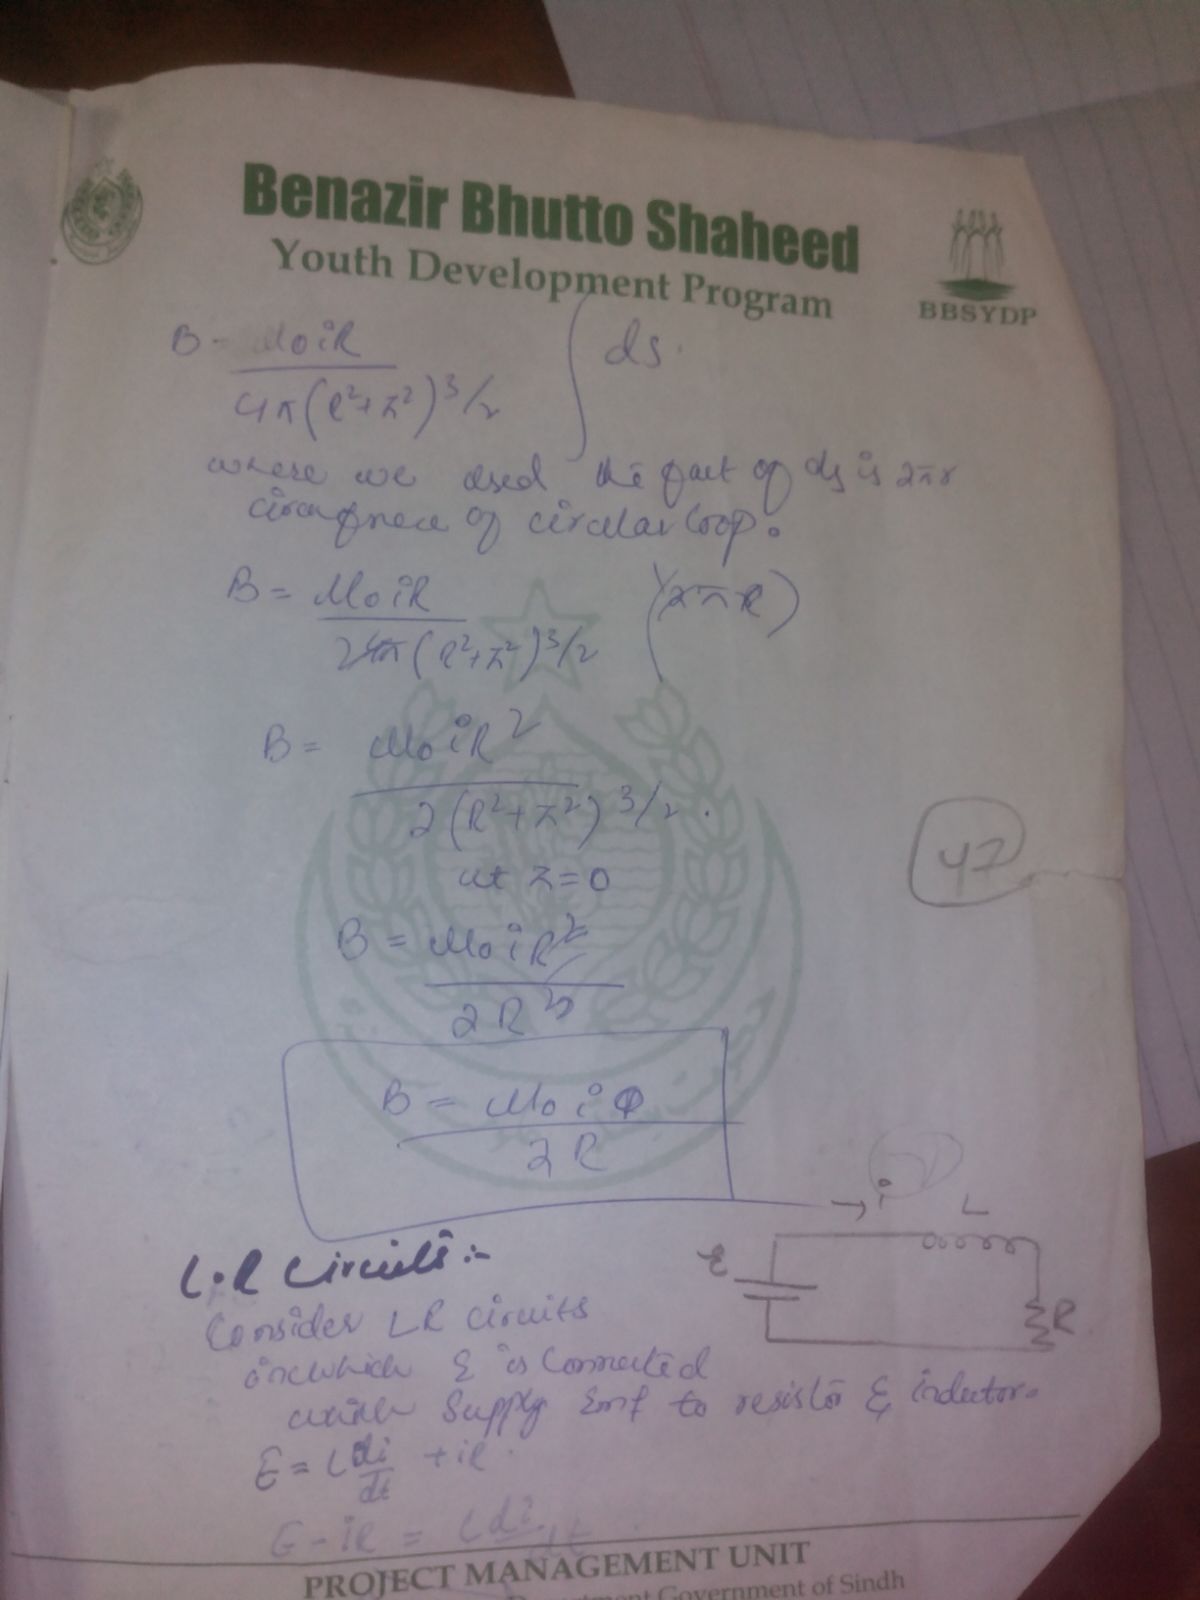 Benazir Bhutto Shaheed
Youth Development Program
BBSYDP
B = μ₀iR / 4π(R²+z²)^3/2 ∫ds.
where we used the fact of ds is 2πr
of circular loop.
B = μ₀iR / 2 4π(R²+z²)^3/2 (2πR)
B = μ₀iR² / 2(R²+z²)^3/2.
at z=0
47
B = μ₀iR² / 2R³
B = μ₀i / 2R
→ i
L
L.R Circuits:-
ε
R
Consider LR circuits
in which ε is Connected
with Supply Emf to resistor & inductor.
E = L di/dt + iR.
E - iR = L di/dt
PROJECT MANAGEMENT UNIT
Department Government of Sindh